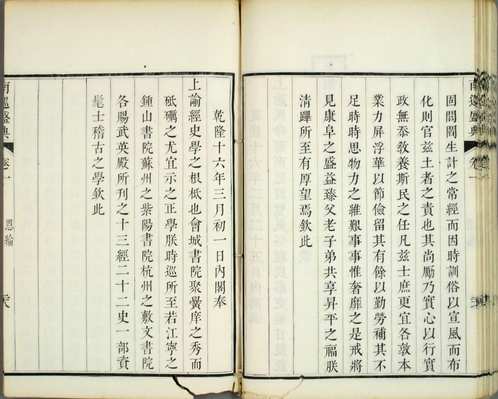 固閭閻生計之常經而因時訓俗以宣風而布
化則官茲土者之責也其尚勵乃實心以行實
政無忝教養斯民之任凡茲士庶更宜各敦本
業力屏浮華以節儉留其有餘以勤勞補其不
足時時思物力之維艱事事惟奢靡之是戒將
見康阜之盛益臻父老子弟共享昇平之福朕
清蹕所至有厚望焉欽此
乾隆十六年三月初一日內閣奉
上諭經史學之根柢也會城書院聚黌庠之秀而
砥礪之尤宜示之正學朕時巡所至若江寧之
鍾山書院蘇州之紫陽書院杭州之敷文書院
各賜武英殿所刊之十三經二十二史一部資
髦士稽古之學欽此
南巡盛典 卷一 恩綸